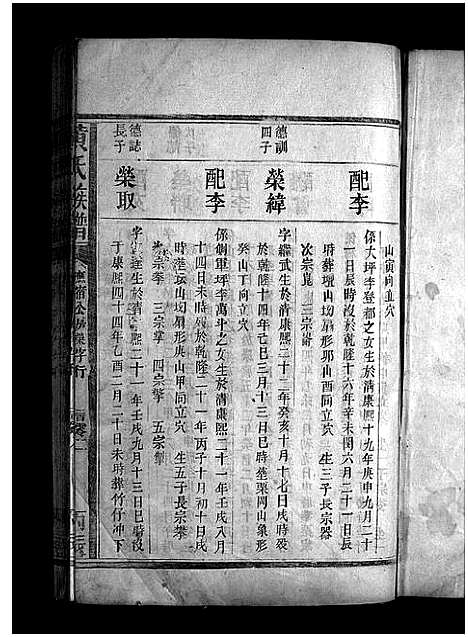 山寅向立穴
配李
係大坪李登都之女生於清康熙十九年庚申九月二十
一日辰時沒於乾隆十六年辛未閏六月二十一日辰
時葬壇山坳扇形卯山酉向立穴 生三子長宗器
次宗嵬 三宗
德訓四子
榮緯
字繼武生於清康熙二十二年癸亥十月十七日戌時歿
於乾隆十四年己巳三月十三日巳時塟栗岡山象形
癸山丁向立穴
配李
係侗軍坪李萬斗之女生於清康熙二十一年壬戌八月
十四日未時歿於乾隆二十一年丙子十月初十日戌
時塟壇山坳扇形庚山甲向立穴 生五子長宗攀
次宗孝 三宗掌 四宗擎 五宗
德誌長子
榮取
字 生於清康熙二十一年壬戌九月十三日巳時沒
于康熙四十四年乙酉二月二十日未時葬竹仔冲下
黃氏族譜